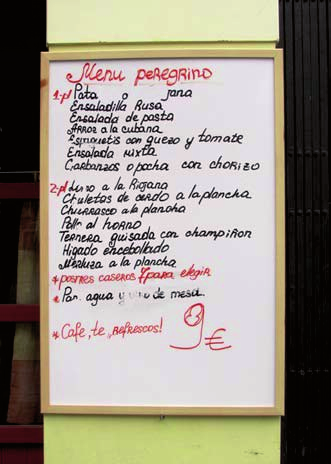 Menu peregrino
1-pl Pata o jana
Ensaladilla Rusa
Ensalada de pasta
Arroz a la cubana
Espaguetis con quezo y tomate
Ensalada mixta
Garbanzos o pocha con chorizo
2-pl a la Riojana
Chuletas de cerdo a la plancha
Churrasco a la plancha
Pollo al horno
Ternera guisada con champiñon
Higado encebollado
Merluza a la plancha
* postres caseros 7 para elegir
* Pan, agua y vino de mesa.
* Cafe, te, refrescos!
9 €